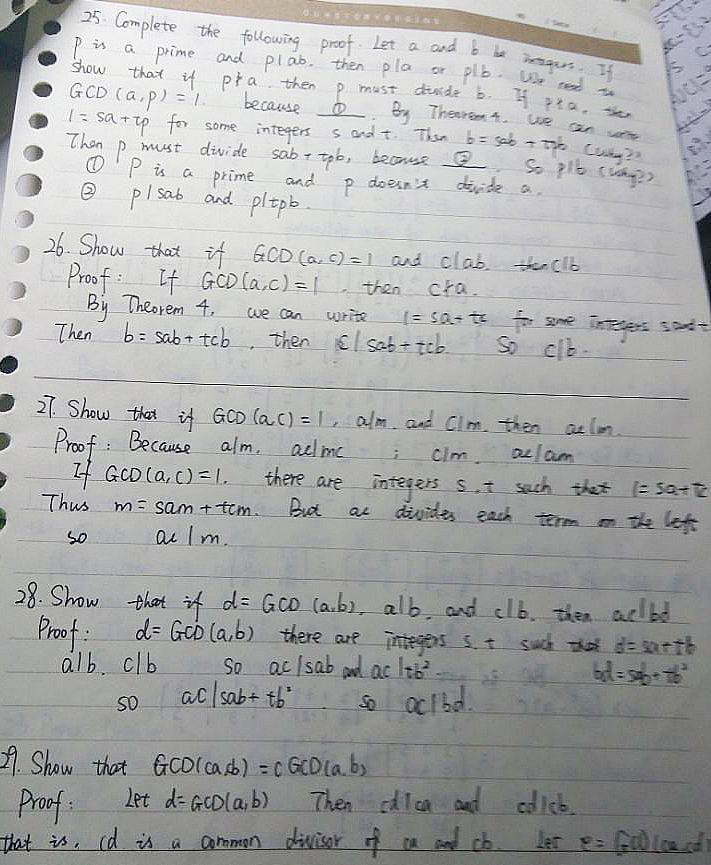 25. Complete the following proof. Let a and b be integers. If
p is a prime and p|ab, then p|a or p|b. We need to
show that if p∤a, then p must divide b. If p∤a, then
GCD(a,p)=1. because ①. By Theorem 4, we can write
1=sa+tp for some integers s and t. Then b=sab+tpb (why?)
Then p must divide sab+tpb, because ②. So p|b (why?)
① P is a prime and p doesn't divide a.
② p|sab and p|tpb.
26. Show that if GCD(a,c)=1 and c|ab, then c|b
Proof: If GCD(a,c)=1, then c∤a.
By Theorem 4, we can write 1=sa+tc for some integers s and t
Then b=sab+tcb, then c|sab+tcb. So c|b.
27. Show that if GCD(a,c)=1, a|m, and c|m, then ac|m.
Proof: Because a|m, ac|mc ; c|m, ac|am
If GCD(a,c)=1, there are integers s,t such that 1=sa+tc
Thus m=sam+tcm. But ac divides each term on the left
so ac|m.
28. Show that if d=GCD(a,b), a|b, and c|b, then ac|bd
Proof: d=GCD(a,b) there are integers s,t such that d=sa+tb
a|b, c|b so ac|sab and ac|tb². bd=sab+tb²
so ac|sab+tb². so ac|bd.
29. Show that GCD(ca,cb)=cGCD(a,b)
Proof: Let d=GCD(a,b) Then cd|ca and cd|cb.
that is, cd is a common divisor of ca and cb. Let e=GCD(ca,cd)